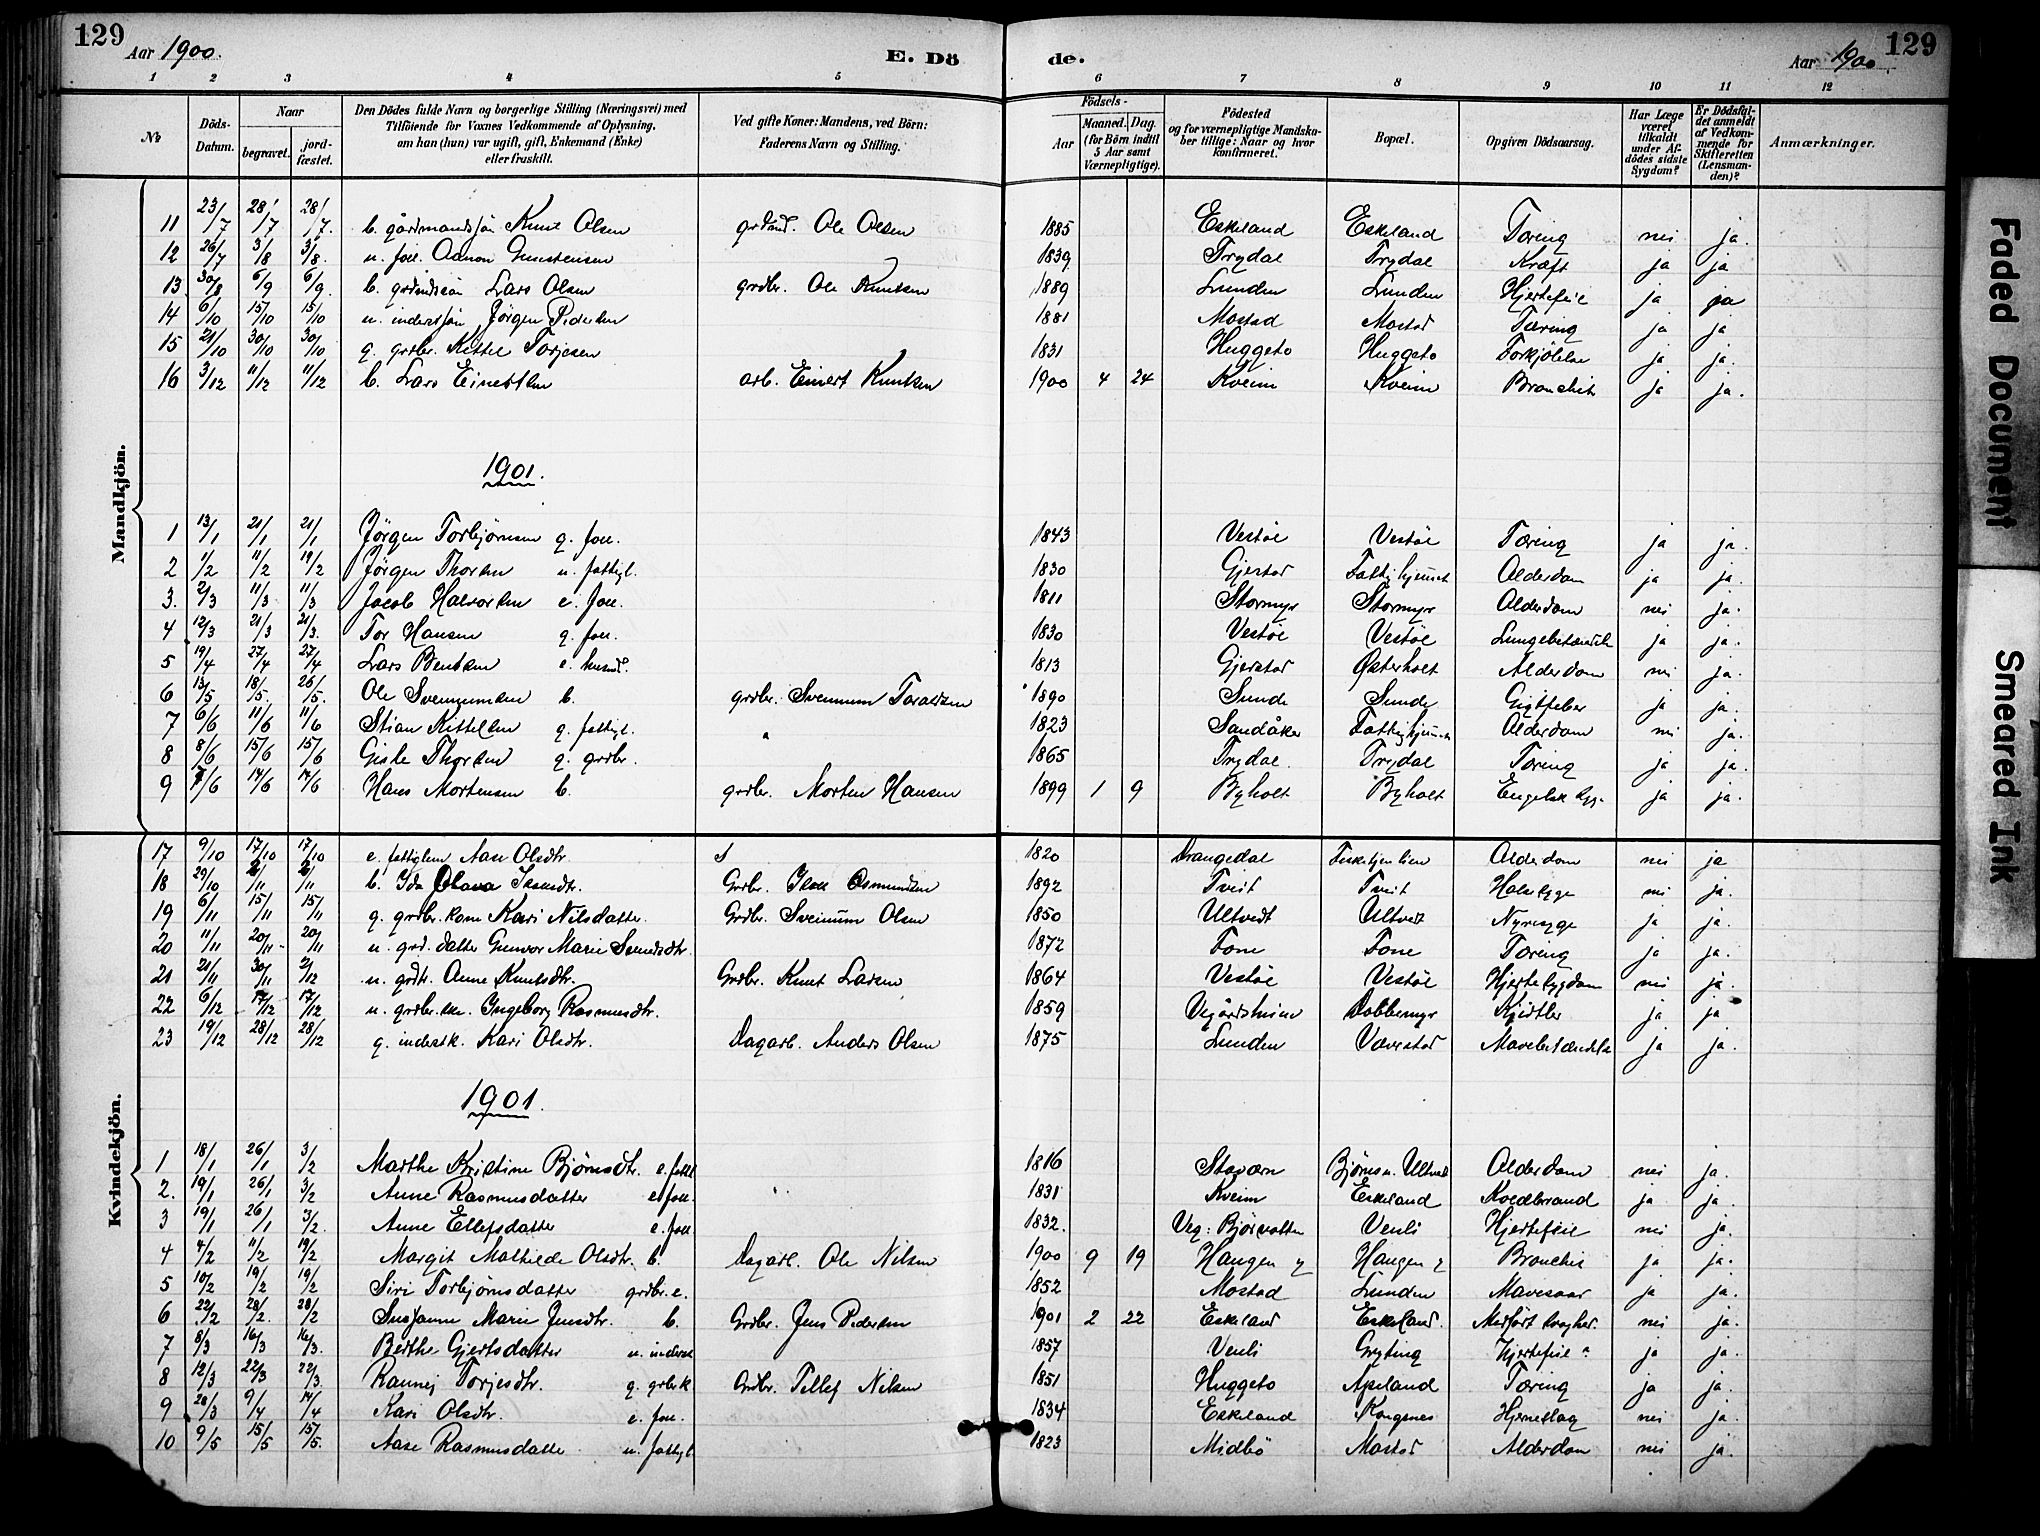 129
Aar 1900.
E. Dö
de.
Aar 1900.
129
1 2 3 4 5 6 7 8 9 10 11 12
No
Döds-Datum.
Naar
begravet.
jord-fæstet.
Den Dödes fulde Navn og borgerlige Stilling (Næringsvei) med
Tilföiende for Voxnes Vedkommende af Oplysning,
om han (hun) var ugift, gift, Enkemand (Enke)
eller fraskilt.
Ved gifte Koner: Mandens, ved Börn:
Faderens Navn og Stilling.
Födsels-
Aar
Maaned. Dag.
(for Börn indtil
5 Aar samt
Værnepligtige).
Födested
og for værnepligtige Mandska-
ber tillige: Naar og hvor
konfirmeret.
Bopæl.
Opgiven Dödsaarsag.
Har Læge
været
tilkaldt
under Af-
dödes sidste
Sygdom?
Er Dödsfal-
det anmeldt
af Vedkom-
mende for
Skifteretten
(Lensman-
den)?
Anmærkninger.
Mandkjön.
11 23/7 28/7 28/7. b. gårdmandssön Knut Olsen grdmd. Ole Olsen 1885 Eskeland Eskeland Tæring nei ja.
12 26/7 3/8 3/8. u. foll. Aanon Gunstensen 1839 Trydal Trydal Kræft ja ja
13 30/8 6/9 6/9. b. grdmdssön Lars Olsen grdbr. Ole Knutsen 1889 Lunden Lunden Hjertefeil ja ja
14 6/10 15/10 15/10 u. inderstsjön Jörgen Pedersen 1881 Mostad Mostad Tæring ja ja
15 21/10 30/10 30/10 g. grdbr. Kittel Torjesen 1831 Huggeto Huggeto Forkjölelse ja ja.
16 3/12 11/12 11/12 b. Lars Einertsen arb. Einert Knutsen 1900 4 24 Kveim Kveim Bronchit ja ja.
1901.
1 13/1 21/1 21/1 Jörgen Torbjörnsen g. foll. 1843 Vestöl Vestöl Tæring ja ja.
2 1/2 11/2 19/2 Jörgen Thorsen u. fattigl. 1830 Gjerstad Fattighjemmet Alderdom ja ja.
3. 2/3 11/3 11/3 Jacob Halvorsen e. foll. 1811 Stormyr Stormyr Alderdom nei ja.
4 12/3 21/3 21/3. Tor Hansen g. foll. 1830 Vestöl Vestöl Lungebetændelse ja ja.
5 19/4 27/4 27/4 Lars Bentsen e. husmd. 1813 Gjerstad Østerholt Alderdom nei ja.
6 13/5 18/5. 26/5. Ole Svennumsen b. grdbr. Svennum Taraldsen 1890 Sunde Sunde Gigtfeber ja ja.
7 6/6 11/6 11/6 Stian Kittelsen g. fattigl. 1823 Sandåker Fattighjemmet Alderdom nei ja.
8 8/6 15/6 15/6 Gisle Thorsen g. grdbr. 1865 Trydal Trydal Tæring ja ja.
9 7/6 14/6 14/6 Hans Mortensen b. grdbr. Morten Hansen 1899 1 9 Byholt Byholt Engelsk syg. ja ja.
Kvindekjön.
17 9/10 17/10 17/10 e. fattiglem Aase Olsdtr. 1820 Drangedal Alderdom nei ja
18 29/10 6/11 6/11 b. Ida Olava dtr. Grdbr. Isak Osmundsen 1892 Tveit Tveit Halssyge nei ja.
19 6/11 15/11 15/11 g. grdbr. kone Kari Nilsdatter. Grdbr. Sveinum Olsen 1850 Ultvedt Ultvedt Nyresyge ja ja.
20 11/11 20/11 20/11 u. grd. datter Gunvor Marie Svendsdtr. 1872 Fone Fone Tæring ja ja.
21 21/11 30/11 2/12 u. grdtr. Anne Knutsdtr. Grdbr. Knut Larsen 1864 Vestöl Vestöl Hjertesygdom nei ja.
22 6/12 17/12 17/12 u. grdbr. Ingeborg Rasmusdtr. 1859 Vegårdsheien Dobbemyr Kjirtler ja ja
23 19/12 28/12 28/12 g. inderstk. Kari Olsdtr. Dagarb. Anders Olsen 1875 Lunden Væverstad Mavebetændelse ja ja.
1901.
1 18/1 26/1 3/2 Marthe Kristine Bjørnsdtr. e. foll. 1816 Stavern Bjørnsn. Ultved Alderdom nei ja.
2. 19/1 26/1 3/2 Anne Rasmusdatter e. foll. 1831 Kveim Eskeland Koldbrand ja ja.
3 19/1 26/1 3/2. Anne Ellefsdatter e. foll. 1832. Veg: Bjørvatten Venli Hjertefeil nei ja.
4 4/2 11/2 19/2 Margit Mathilde Olsdtr. b. Dagarb. Ole Nilsen 1900 9 19 Haugen y Haugen y Bronchit ja ja.
5 10/2 19/2 19/2 Siri Torbjørnsdatter grdbr. e. 1852 Mostad Lunden Mavesaar ja ja.
6 22/2 28/2. 28/2 Susanne Marie Jensdtr. b. Grdbr. Jens Pedersen 1901 2 22 Eskeland Eskeland. Medført svaghed. nei ja.
7 8/3 16/3 16/3. Berthe Gjertsdatter u. inderst 1857 Venli Gryting Hjertefeil ja ja.
8 12/3 22/3 22/3. Rannej Torjesdtr. g. grdbrk Grdbr. Tellef Nilsen 1851 Huggeto Apeland Tæring ja ja.
9 28/3 9/4 14/4 Kari Olsdtr. e. foll. 1834 Eskeland Kongsnes Hjerneslag nei ja.
10 9/5 15/5 15/5. Aase Rasmusdatter u. fattigl 1823 Midbö Mostad Alderdom nei ja.
Faded Document
Smeared Ink